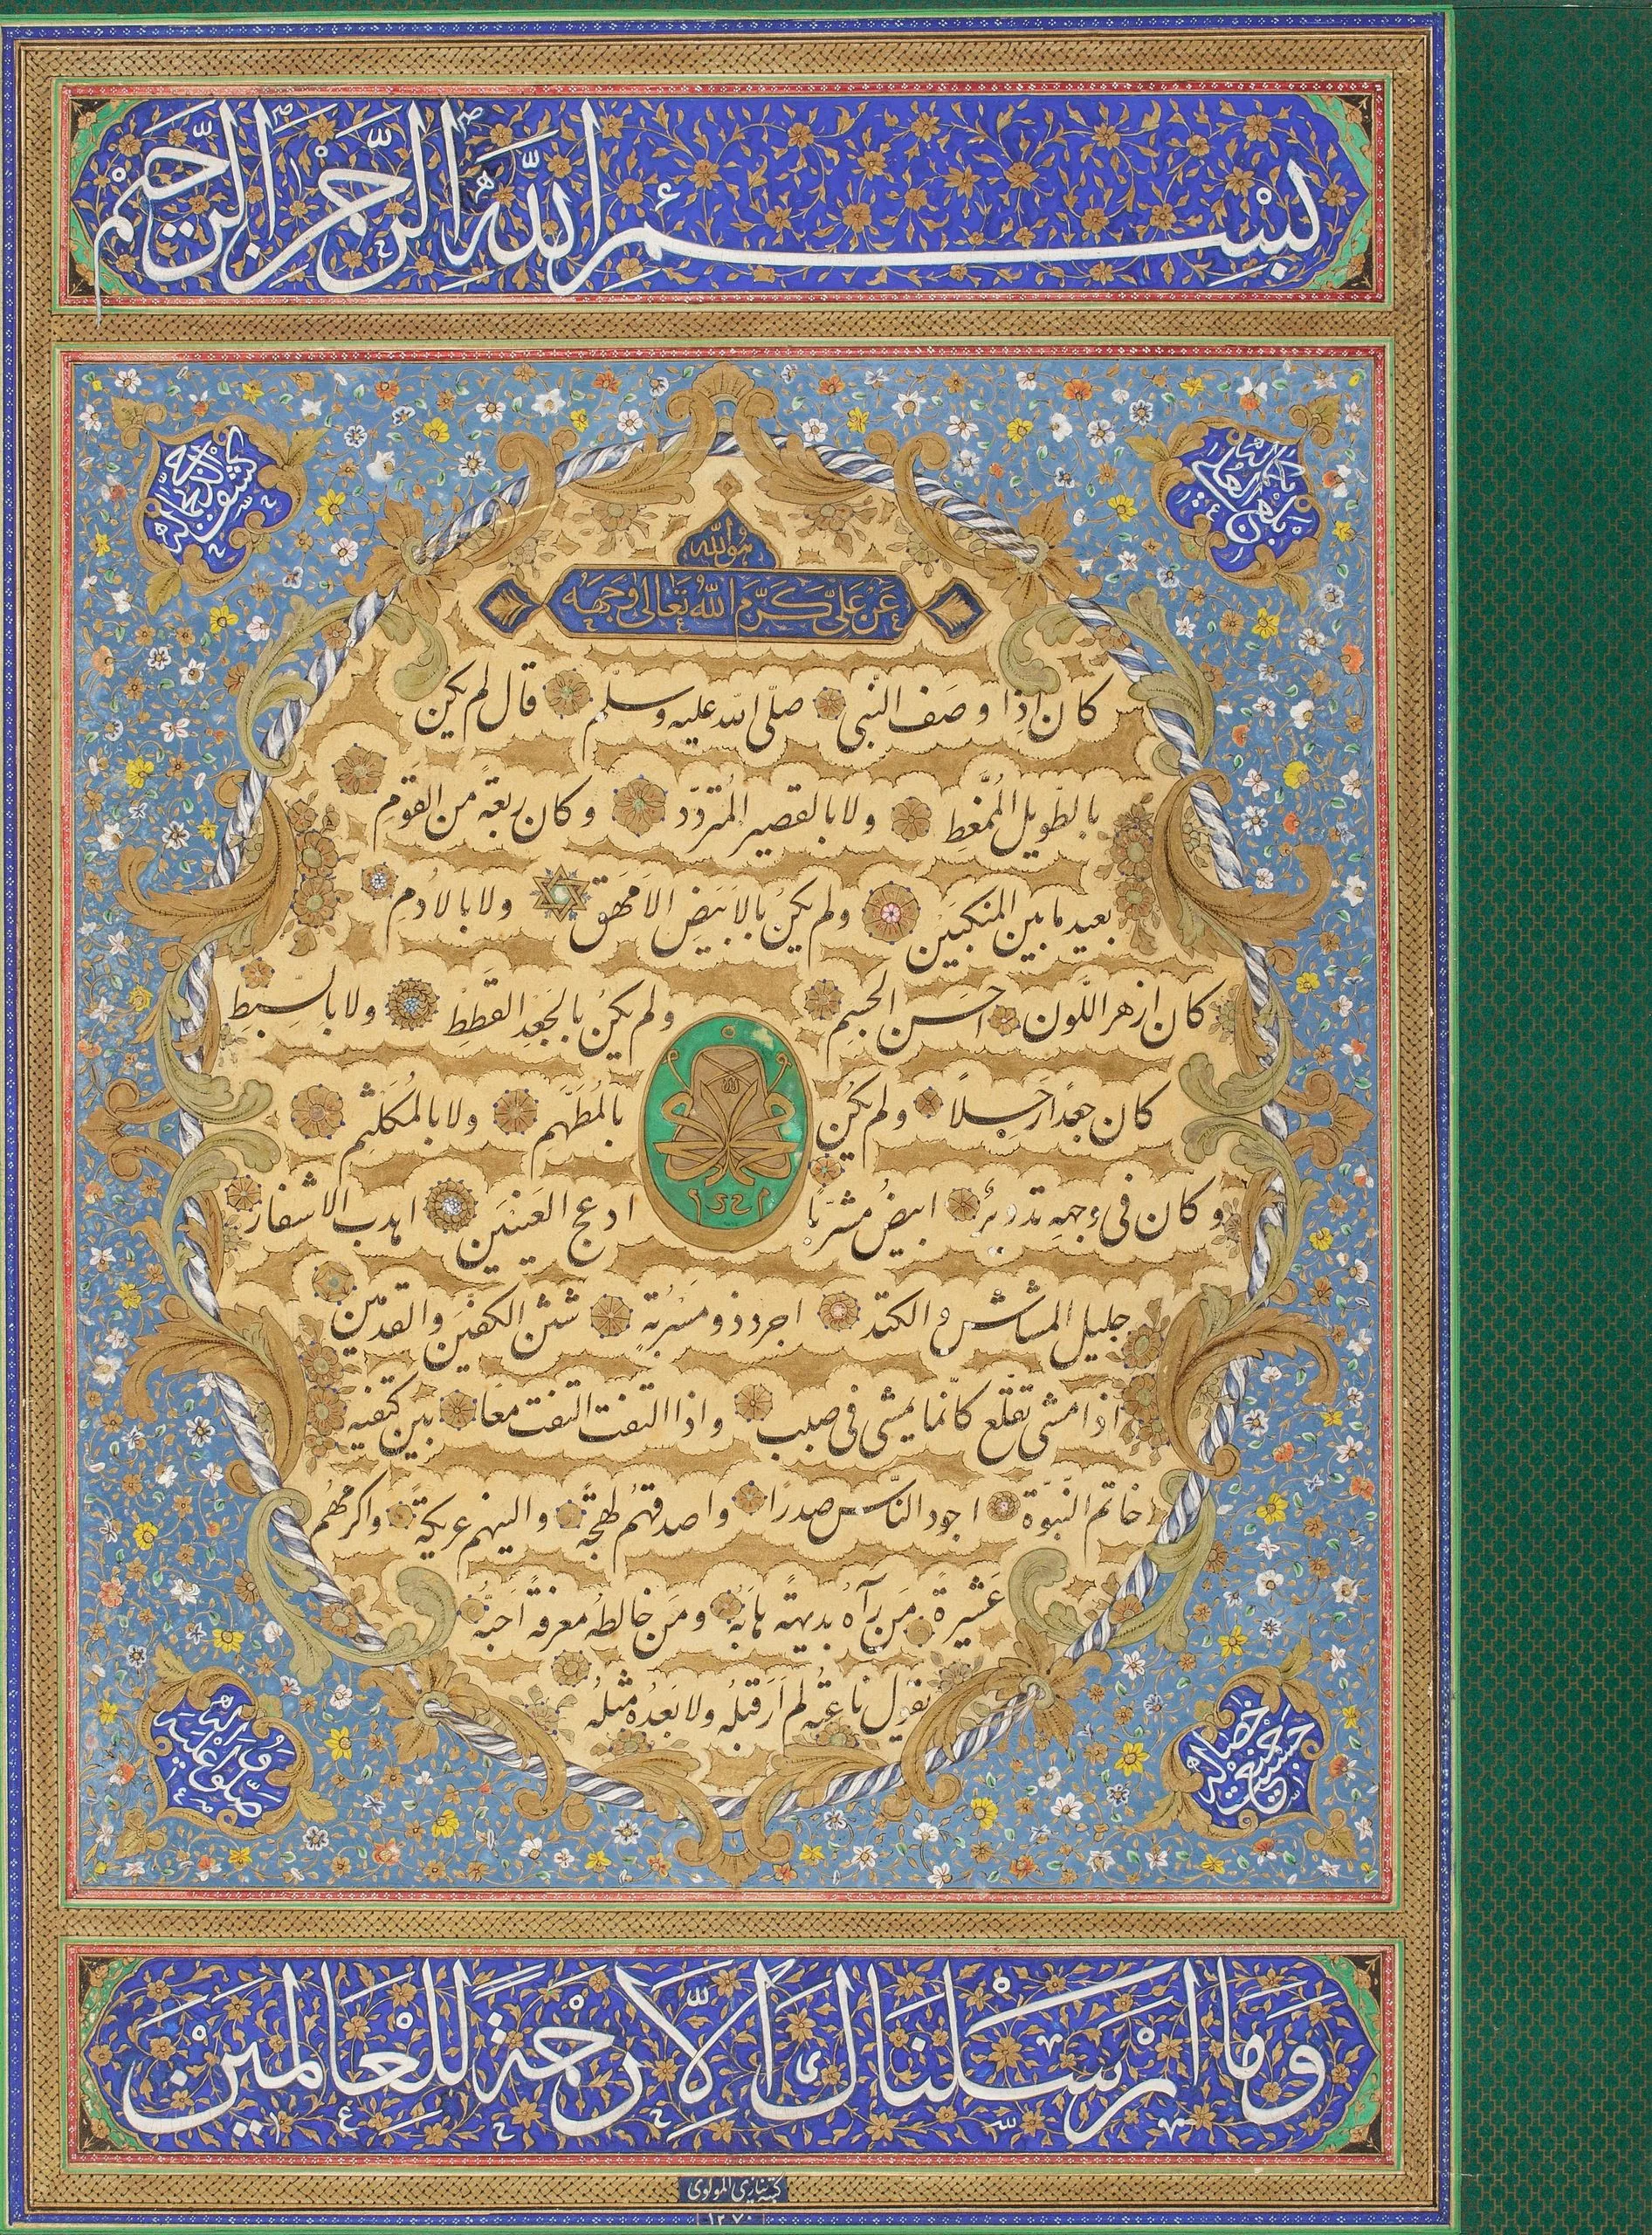 بسم الله الرحمن الرحيم
بلغ العلى بكماله
كشف الدجى بجماله
هو الله
عَنْ عَلِيٍّ كَرَّمَ اللهُ تَعَالَى وَجْهَهُ
كان اِذا وصَف النّبى صلّى الله عليه وسلّم قال لم يكنْ
بالطّويل المُمَّغط ولا بالقصير المُتردّد وكان ربعةً من القَومِ
بعيد ما بين المنكبَيْن ولم يكنْ بالاَبيَضِ الاَمهَق ولا بالادمِ
كان ازهر اللّون احسَن الجسِم ولم يكنْ بالجَعدِ القَططِ ولا بالسبطِ
كان جعدًا رَجِلاً ولم يكنْ بالمُطَهَّمِ ولا بالمُكَلثمِ
وكان فى وجهِه تدويرٌ ابيضُ مشربًا ادعج العَينَين اهدب الاشفار
جليل المشاش والكتد اجرد ذو مسرُبةٍ شثن الكفّين والقدمَين
اذا مشى تقلّع كانّما يمشى فى صبب واذا التفت التفت معًا بين كتفيه
خاتم النّبوّة اجود النّاس صدرًا واصدقهُم لهجةً والينهم عريكةً واكرمهُم
عَشيرةً مَن رآه بديهةً هابهُ ومَن خالطهُ معرفةً اَحبَّهُ
يقول ناعتُه لم اَرَ قبلهُ ولا بَعدَه مثلهُ
١٢٥٢
حسنت جميع خصاله
صلّوا عليه وآله
وَمَا اَرْسَلْنَاكَ اِلاَّ رَحْمَةً لِلْعَالَمِينَ
كتبه نيازى المولوى
١٢٧٠